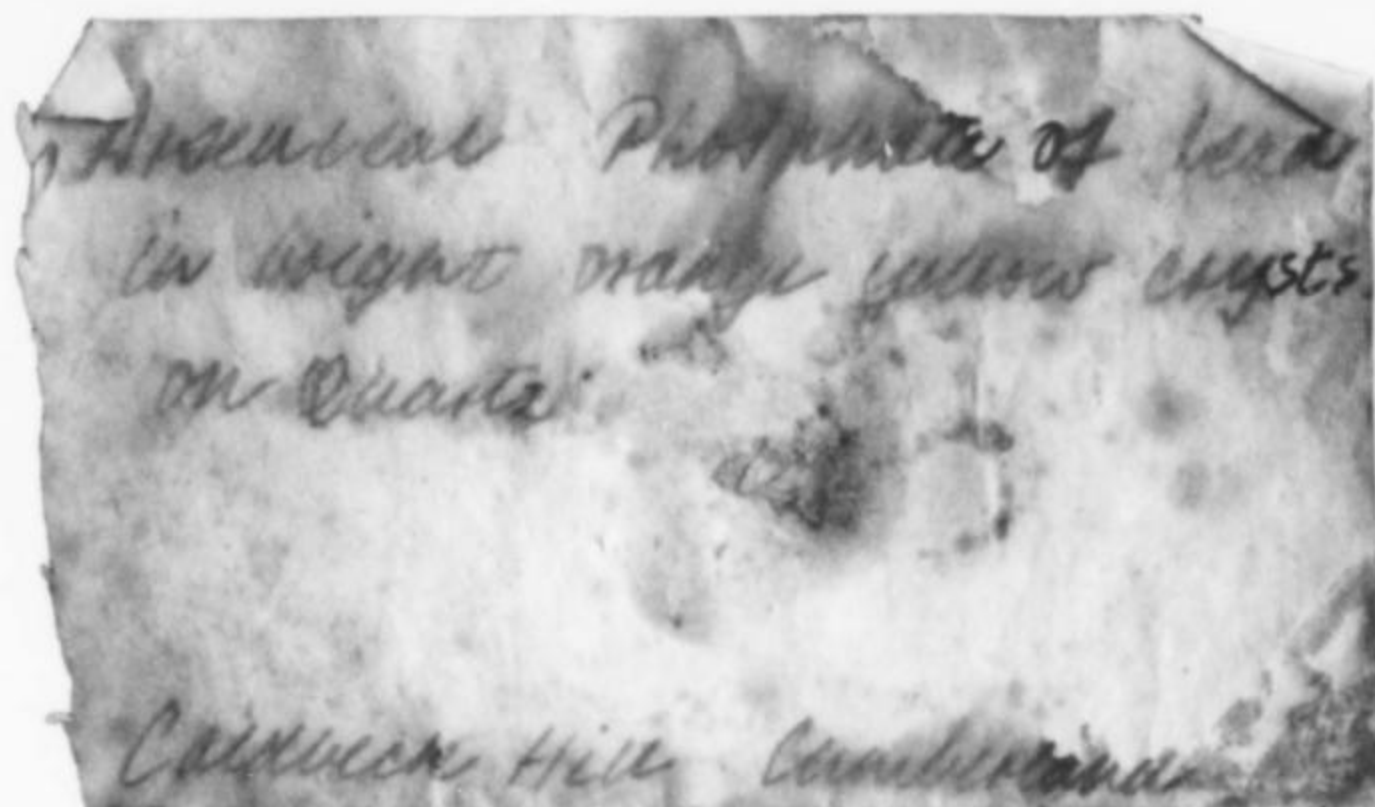 Arsenical Phosphate of lead
in bright orange yellow crysts
on Quartz.
Caldbeck Hill Cumberland